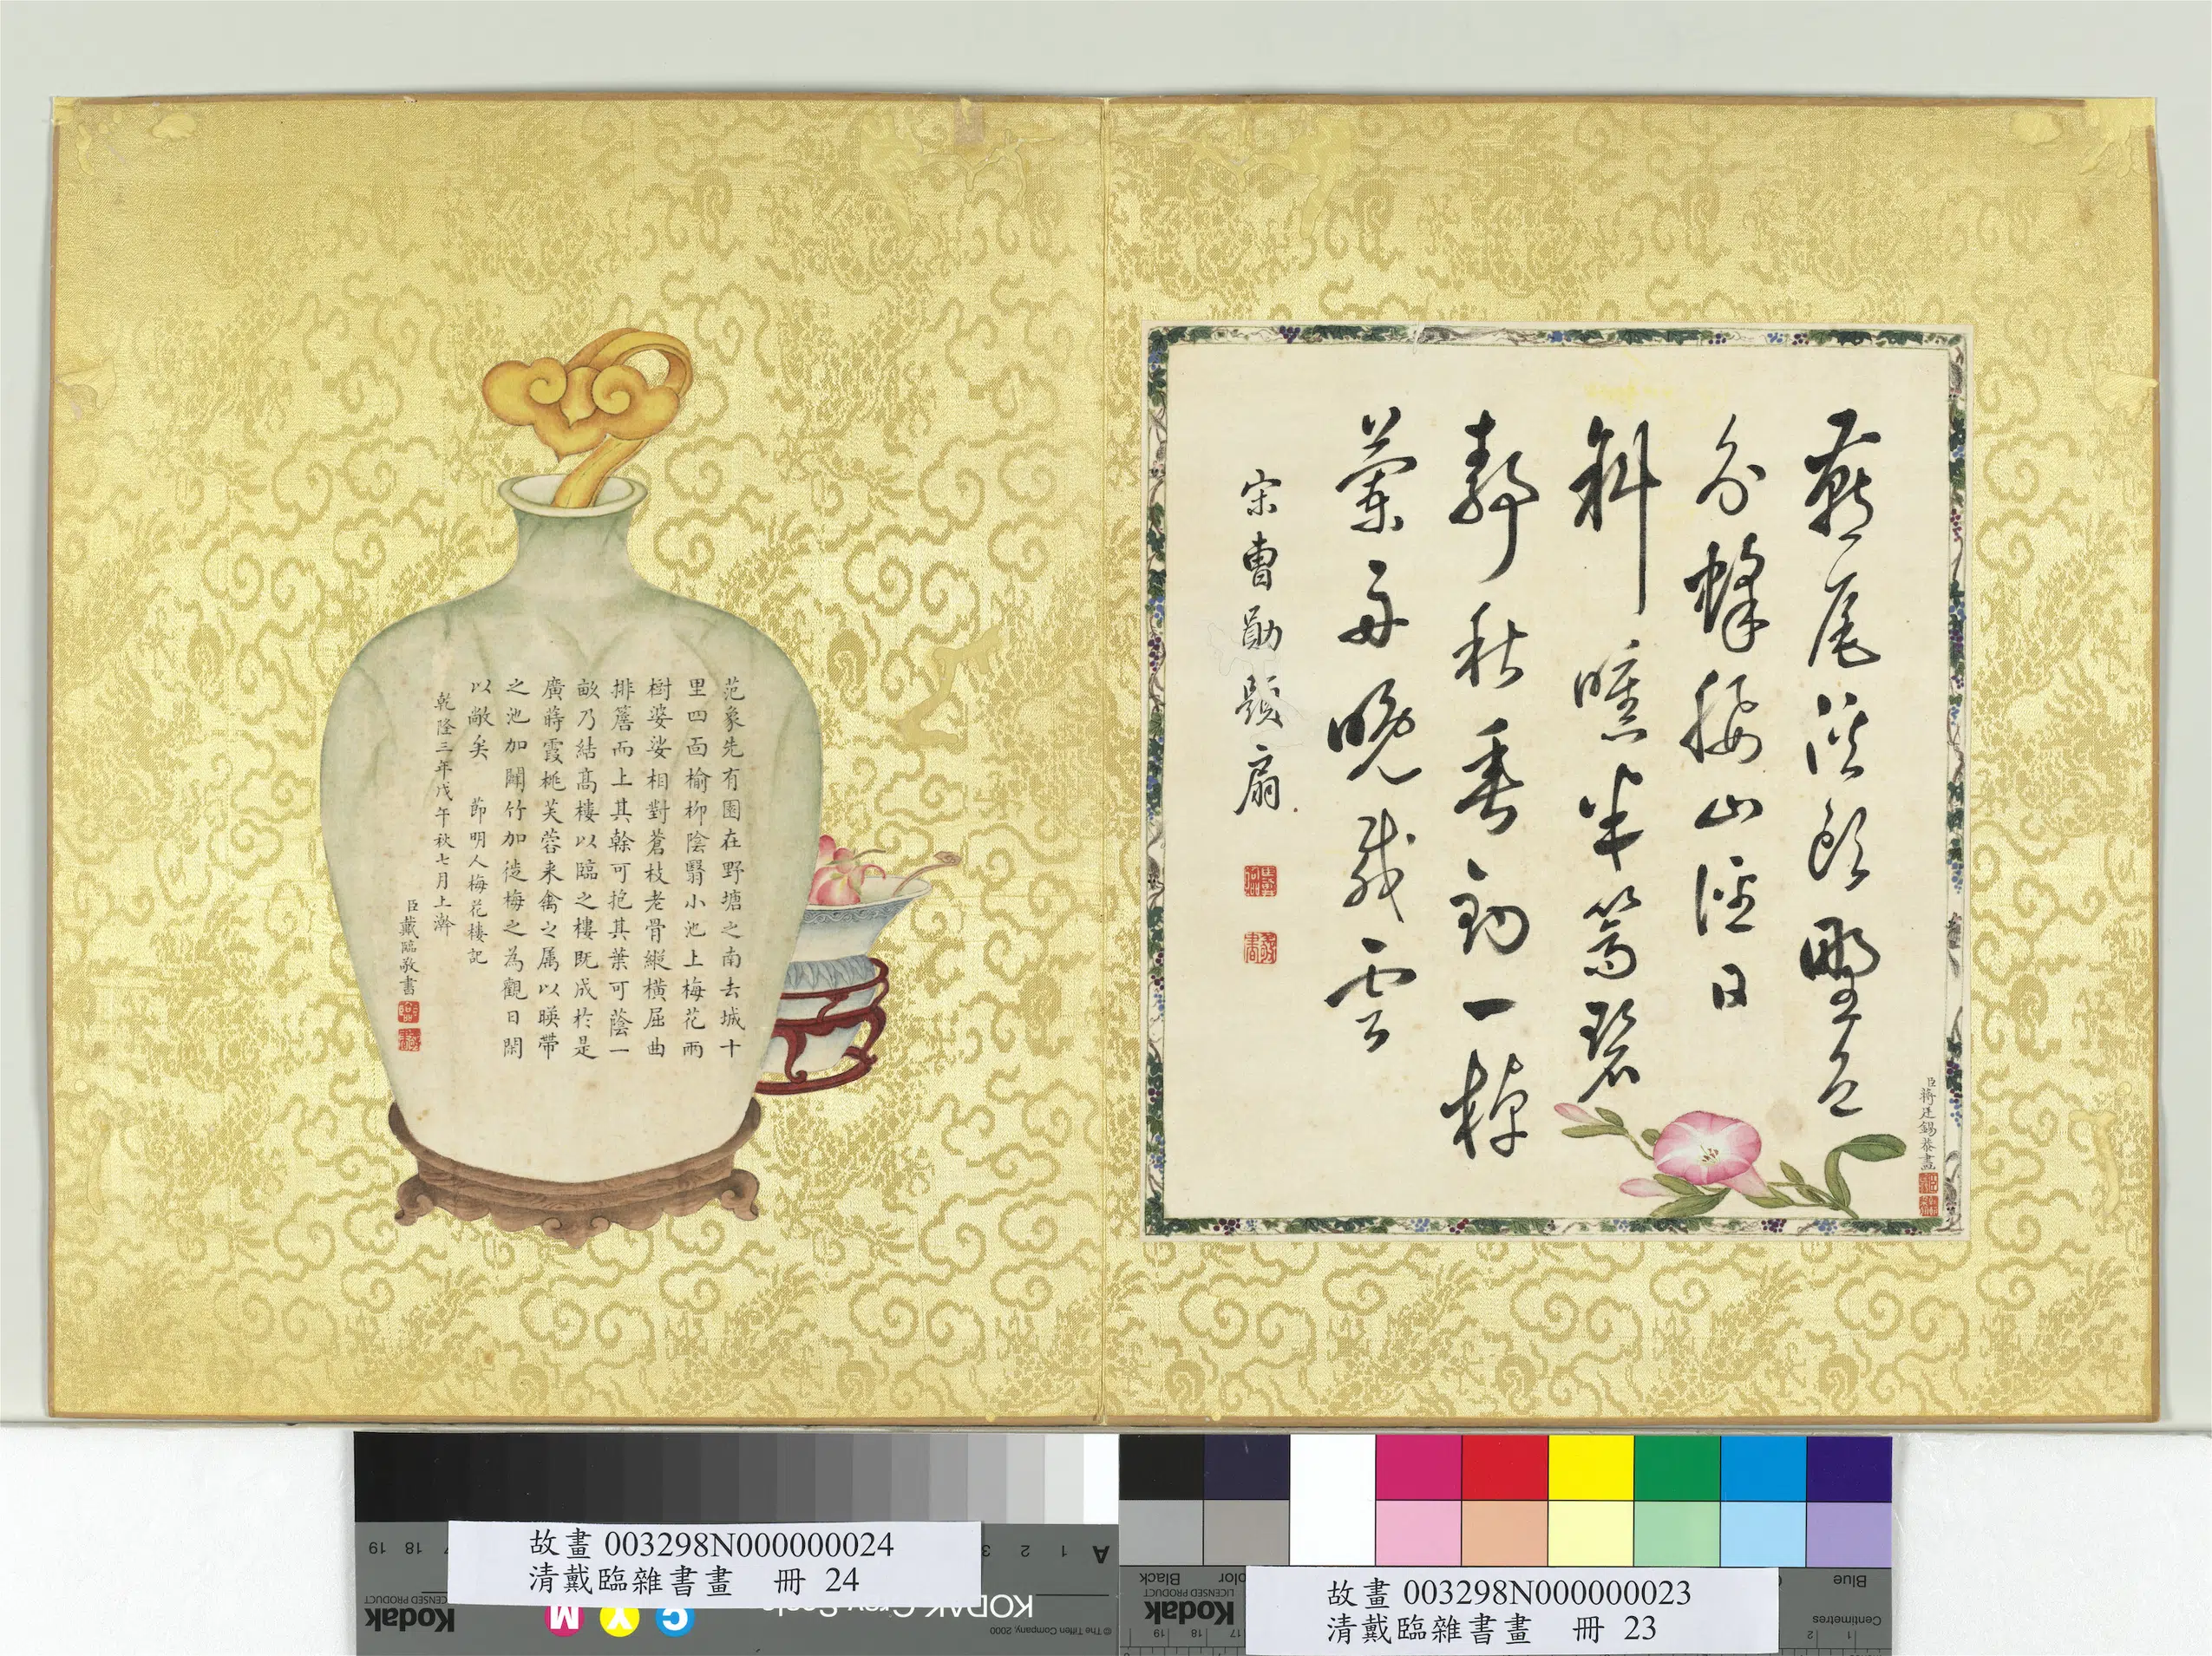 燕尾溪頭野色
分蜂腰山徑日
斜曛半篙碧
靜秋垂釣一棹
蘭舟晚載雲
宋曹勛題扇
臣蔣廷錫恭畫
范象先有園在野塘之南去城十
里四面榆柳陰翳小池上梅花兩
樹婆娑相對蒼枝老骨縱橫屈曲
排簷而上其榦可抱其葉可蔭一
畝乃結高樓以臨之樓既成於是
廣蒔霞桃芙蓉来禽之属以暎帶
之池加闢竹加徙梅之為觀日閑
以敞矣 節明人梅花樓記
乾隆三年戊午秋七月上澣
臣戴臨敬書
故畫 003298N000000024
清戴臨雜書畫 冊 24
故畫 003298N000000023
清戴臨雜書畫 冊 23
Kodak
LICENSED PRODUCT
M Y C
A 1 2 3
18 19
© The Tiffen Company, 2000
Black
Kodak
LICENSED PRODUCT
Blue
Centimetres